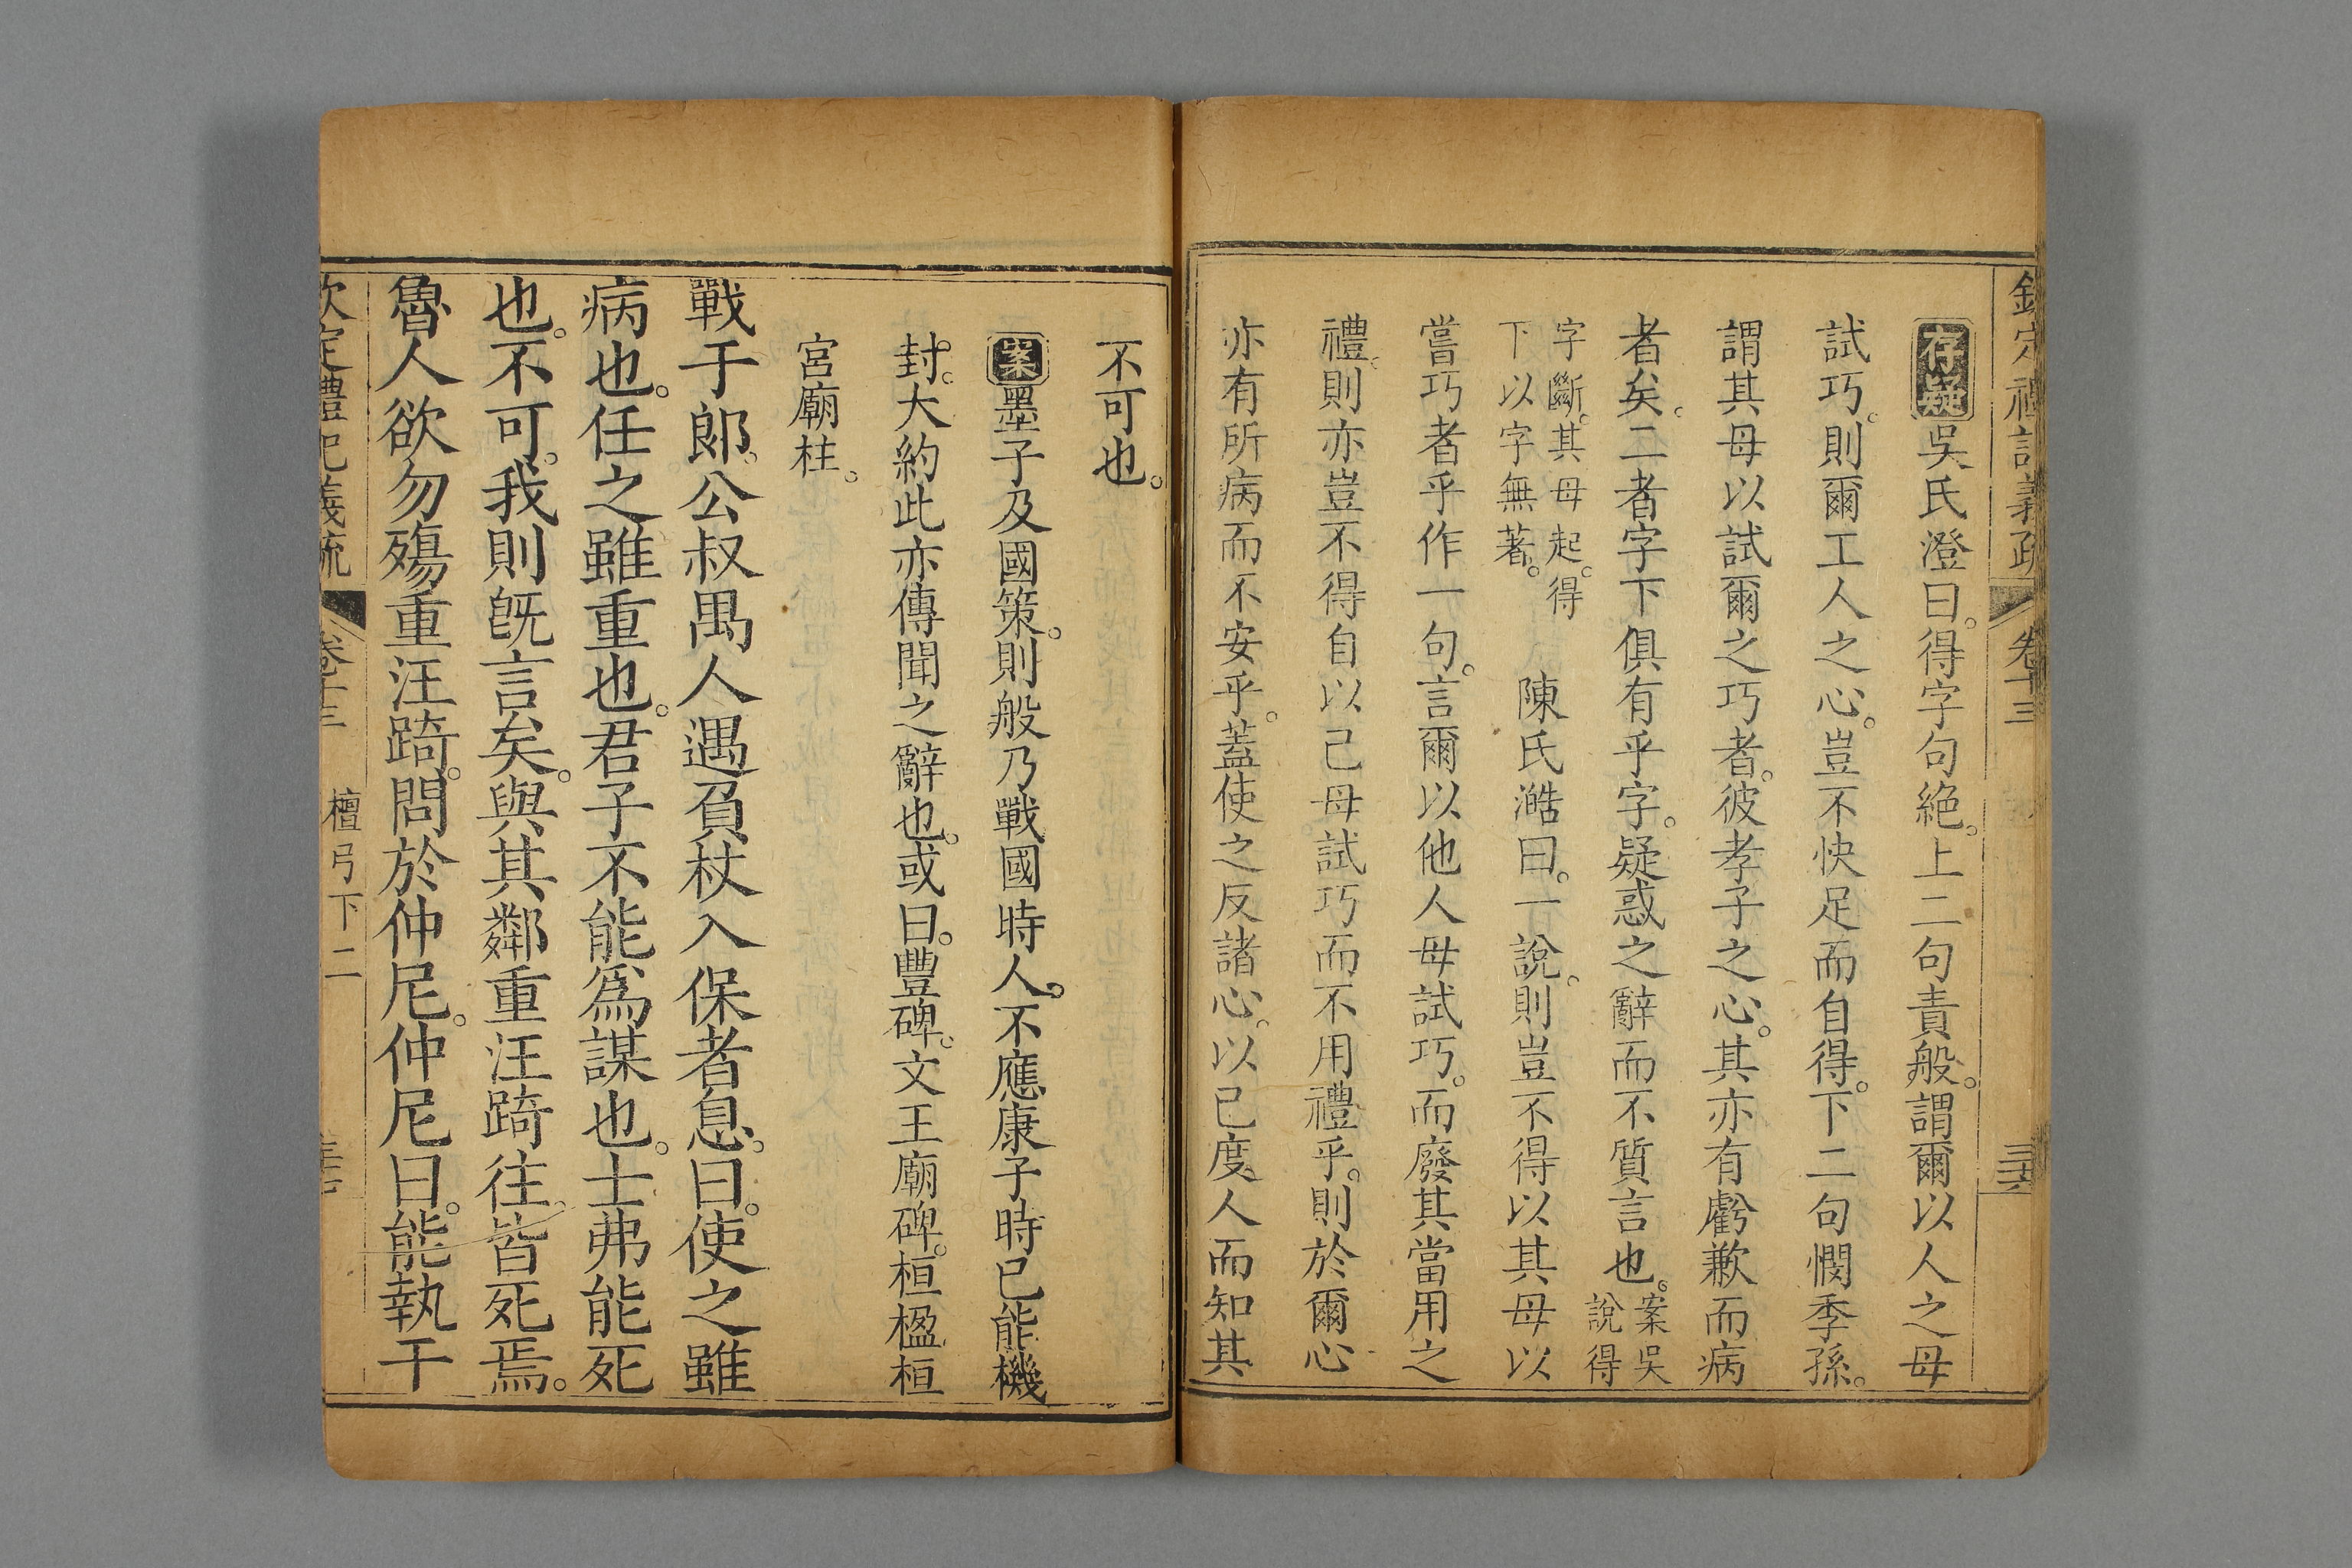 欽定禮記義疏 卷十三 三六
存疑吳氏澄曰。得字句絕。上二句責般。謂爾以人之母
試巧。則爾工人之心。豈不快足而自得。下二句憫季孫。
謂其母以試爾之巧者。彼孝子之心。其亦有虧歉而病
者矣。二者字下俱有乎字。疑惑之辭而不質言也。案吳說得
字斷。其母起。得下以字無著。 陳氏澔曰。一說。則豈不得以其母以
嘗巧者乎作一句。言爾以他人母試巧。而廢其當用之
禮。則亦豈不得自以己母試巧而不用禮乎。則於爾心
亦有所病而不安乎。蓋使之反諸心。以已度人而知其
不可也。
案墨子及國策。則般乃戰國時人。不應康子時已能機
封。大約此亦傳聞之辭也。或曰。豐碑。文王廟碑。桓楹桓
宮廟柱。
戰于郎。公叔禺人遇負杖入保者息。曰。使之雖
病也。任之雖重也。君子不能爲謀也。士弗能死
也。不可。我則旣言矣。與其鄰重汪踦往。皆死焉。
魯人欲勿殤重汪踦。問於仲尼。仲尼曰。能執干
欽定禮記義疏 卷十三 檀弓下二 三七